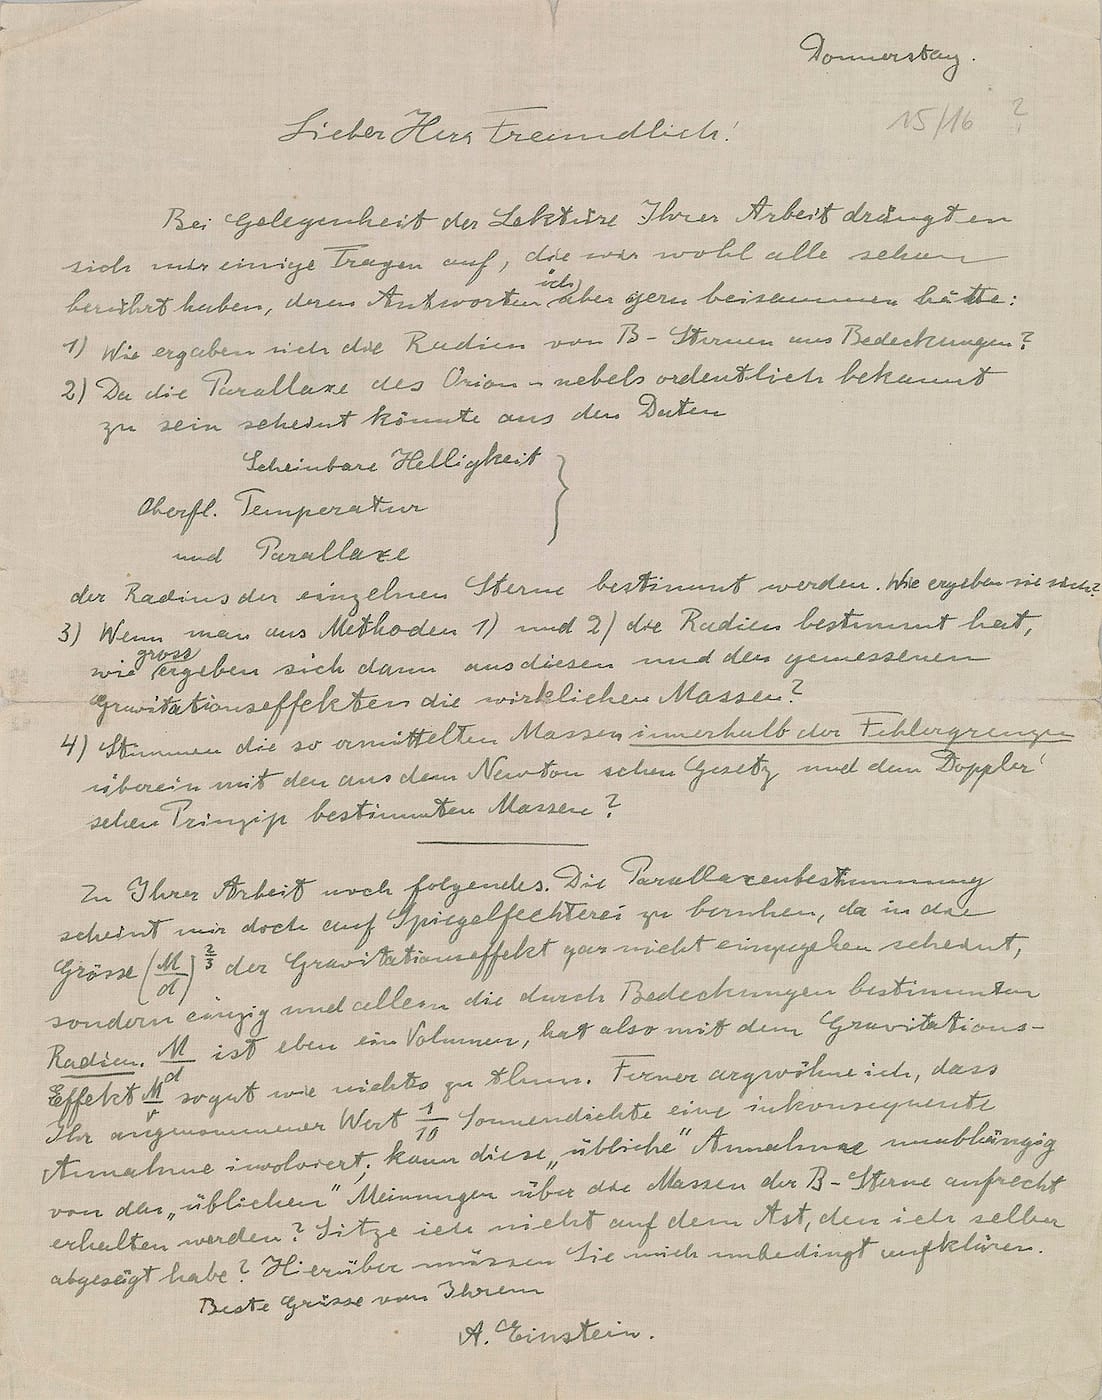 Donnerstag.
15/16 ?
Lieber Herr Freundlich!
Bei Gelegenheit der Lektüre Ihrer Arbeit drängten
sich mir einige Fragen auf, die wir wohl alle schon
berührt haben, deren Antworten ich aber gern beisammen hätte:
1) Wie ergaben sich die Radien von B-Sternen aus Bedeckungen?
2) Da die Parallaxe des Orion-nebels ordentlich bekannt
zu sein scheint könnte aus den Daten
Scheinbare Helligkeit
Oberfl. Temperatur
und Parallaxe
der Radius der einzelnen Sterne bestimmt werden. Wie ergeben sie sich?
3) Wenn man aus Methoden 1) und 2) die Radien bestimmt hat,
wie gross ergeben sich dann aus diesen und den gemessenen
Gravitationseffekten die wirklichen Massen?
4) Stimmen die so ermittelten Massen innerhalb der Fehlergrenzen
überein mit den aus dem Newton'schen Gesetz und dem Doppler'
schen Prinzip bestimmten Massen?
Zu Ihrer Arbeit noch folgendes. Die Parallaxenbestimmung
scheint mir doch auf Spiegelfechterei zu beruhen, da in die
Grösse (M/d)^2/3 der Gravitationseffekt gar nicht einzugehen scheint,
sondern einzig und allein die durch Bedeckungen bestimmten
Radien. M/d ist eben ein Volumen, hat also mit dem Gravitations-
Effekt M/r so gut wie nichts zu thun. Ferner argwöhne ich, dass
Ihr angenommener Wert 1/10 Sonnendichte eine inkonsequente
Annahme involviert; kann diese „übliche" Annahme unabhängig
von den „üblichen" Meinungen über die Massen der B-Sterne aufrecht
erhalten werden? Sitze ich nicht auf dem Ast, den ich selber
abgesägt habe? Hierüber müssen Sie mich unbedingt aufklären.
Beste Grüsse von Ihrem
A. Einstein.